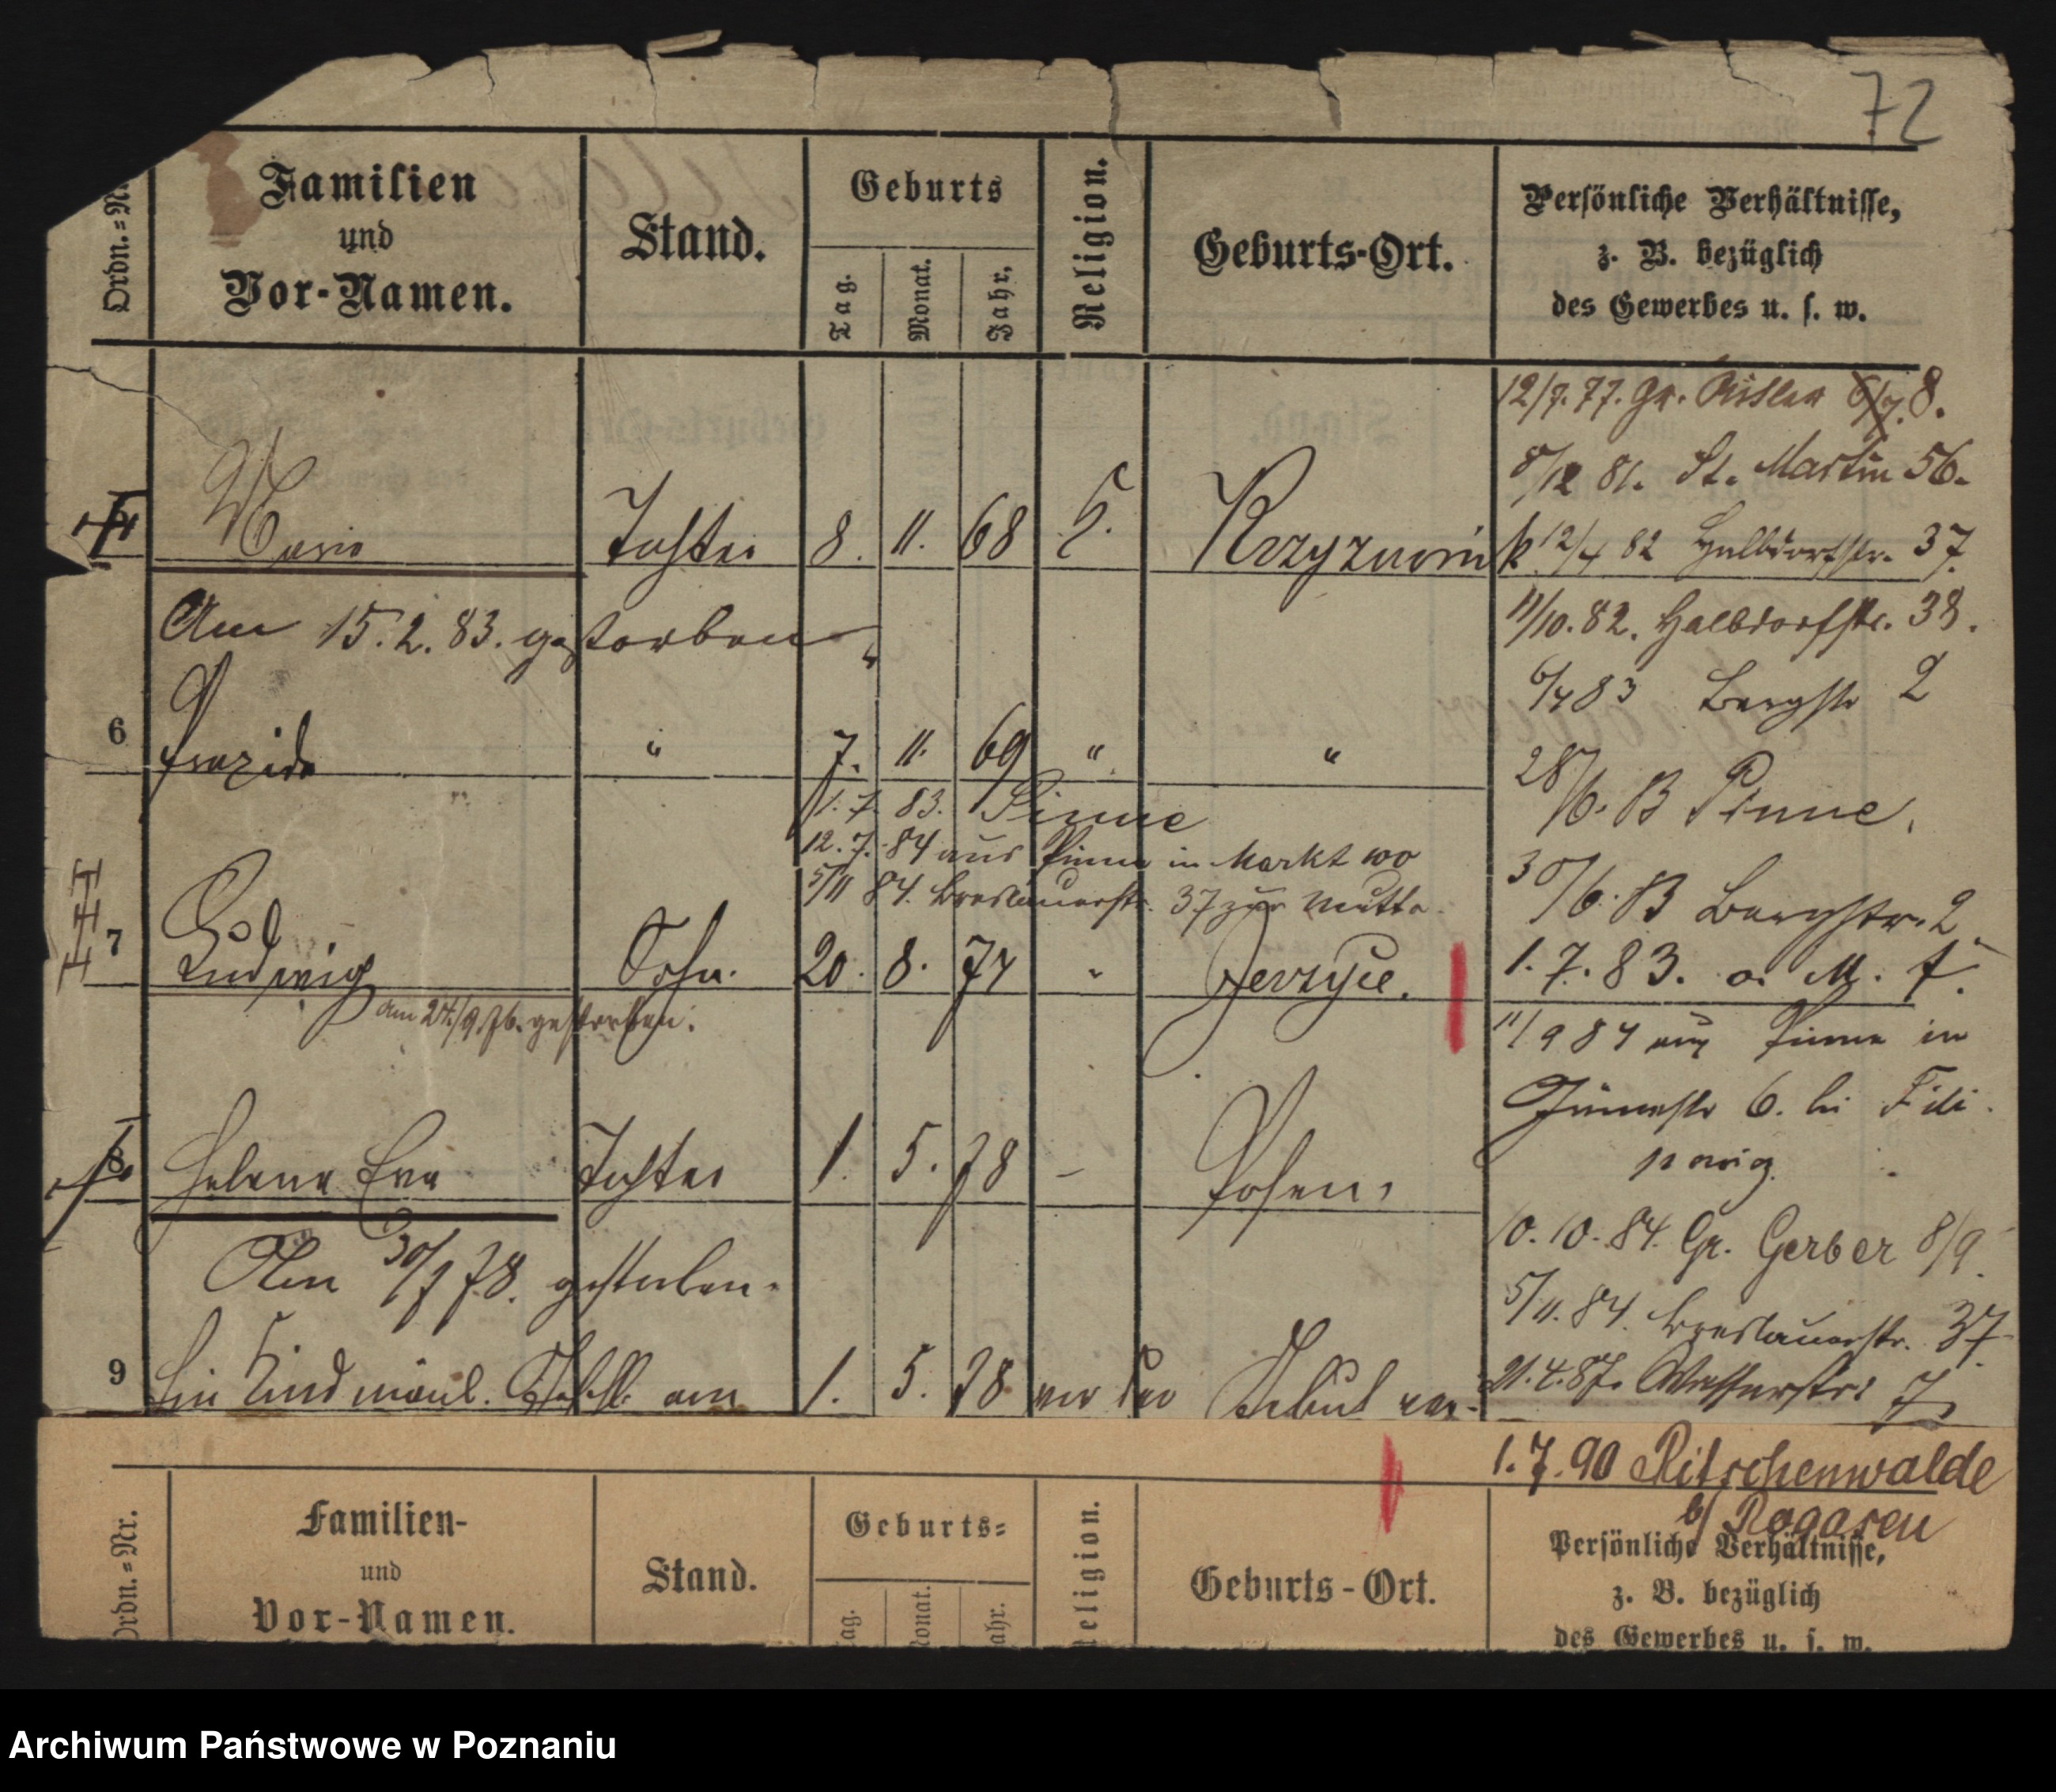 72
Ordn.=N
Familien
und
Vor-Namen.
Stand.
Geburts
Tag.
Monat.
Jahr.
Religion.
Geburts-Ort.
Persönliche Verhältnisse,
z. B. bezüglich
des Gewerbes u. s. w.
12/7.77. Gr. Ritter 6/7. 8.
8/12 81. St. Martin 56.
Marie Tochter 8. 11. 68 Krzyzownik
12/4 82 Halbdorfstr. 37.
Am 15.2.83. gestorben
11/10.82. Halbdorfstr. 38.
6/4 83 Bergstr 2
6 " 7. 11. 69 " "
28/6. 83 Pinne.
1. 7. 83. Pinne
12. 7. 84 aus Pinne in Markt 100
5/11 84. Breslauerstr. 37 zur Mutter
30/6. 83 Bergstr. 2
7 Ludwig Sohn. 20. 8. 74 " Jerzyce.
1. 7. 83. a. M.
am 24/9 76. gestorben.
11/9 84 aus Pinne in
6. bei Fili
powig.
8 Helena Eva Tochter 1. 5. 78 - Posen.
Am 30/7 78. gestorben.
10. 10. 84. Gr. Gerber 8/9.
5/11. 84. Breslauerstr. 37
9 Ein Kind männl. Geschl. am 1. 5. 78 vor der Geburt ver-
21.4.87. Wasserstr. 7.
1. 7. 90 Ritschenwalde
b/ Rogasen
Ordn.=Nr.
Familien-
und
Vor-Namen.
Stand.
Geburts=
ag.
onat.
ahr.
eligion.
Geburts-Ort.
Persönliche Verhältnisse,
z. B. bezüglich
des Gewerbes u. s. w.
Archiwum Państwowe w Poznaniu